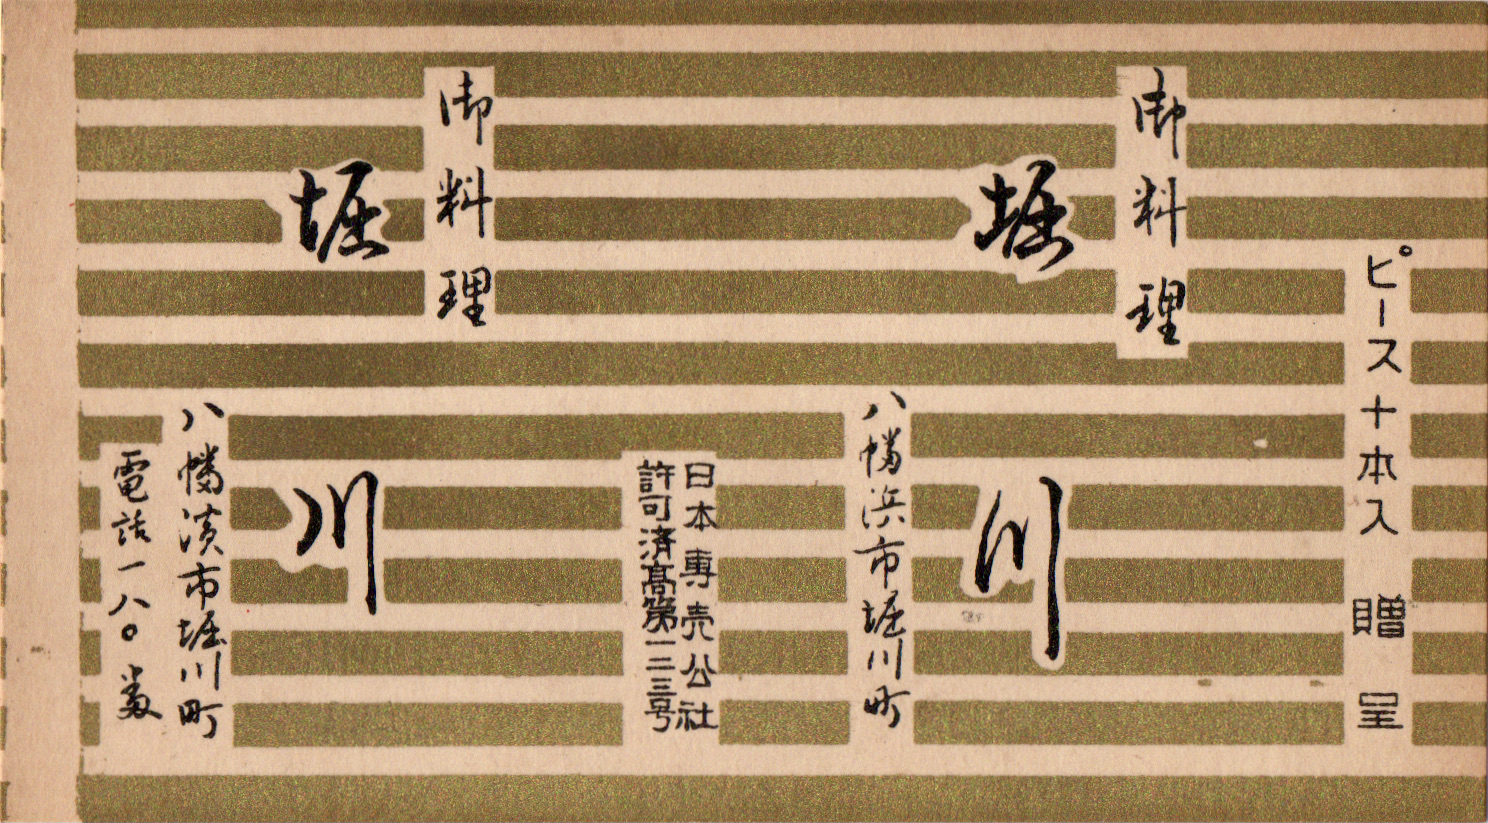 ピース十本入 贈呈
御料理
堀川
八幡浜市堀川町
日本専売公社
許可済髙第一二三号
御料理
堀川
八幡濱市堀川町
電話一八〇番